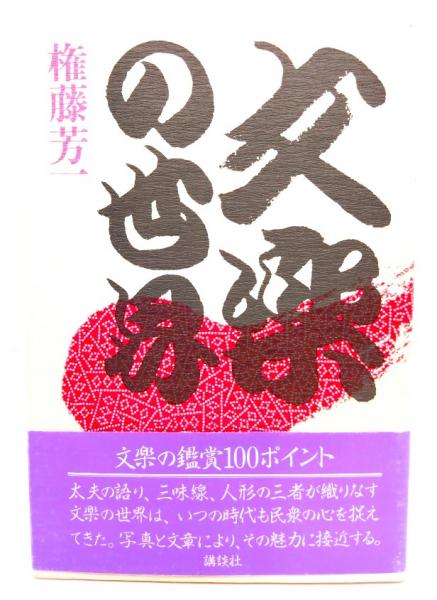 文楽
の世界
権藤芳一
文楽の鑑賞100ポイント
太夫の語り、三味線、人形の三者が織りなす
文楽の世界は、いつの時代も民衆の心を捉え
てきた。写真と文章により、その魅力に接近する。
講談社